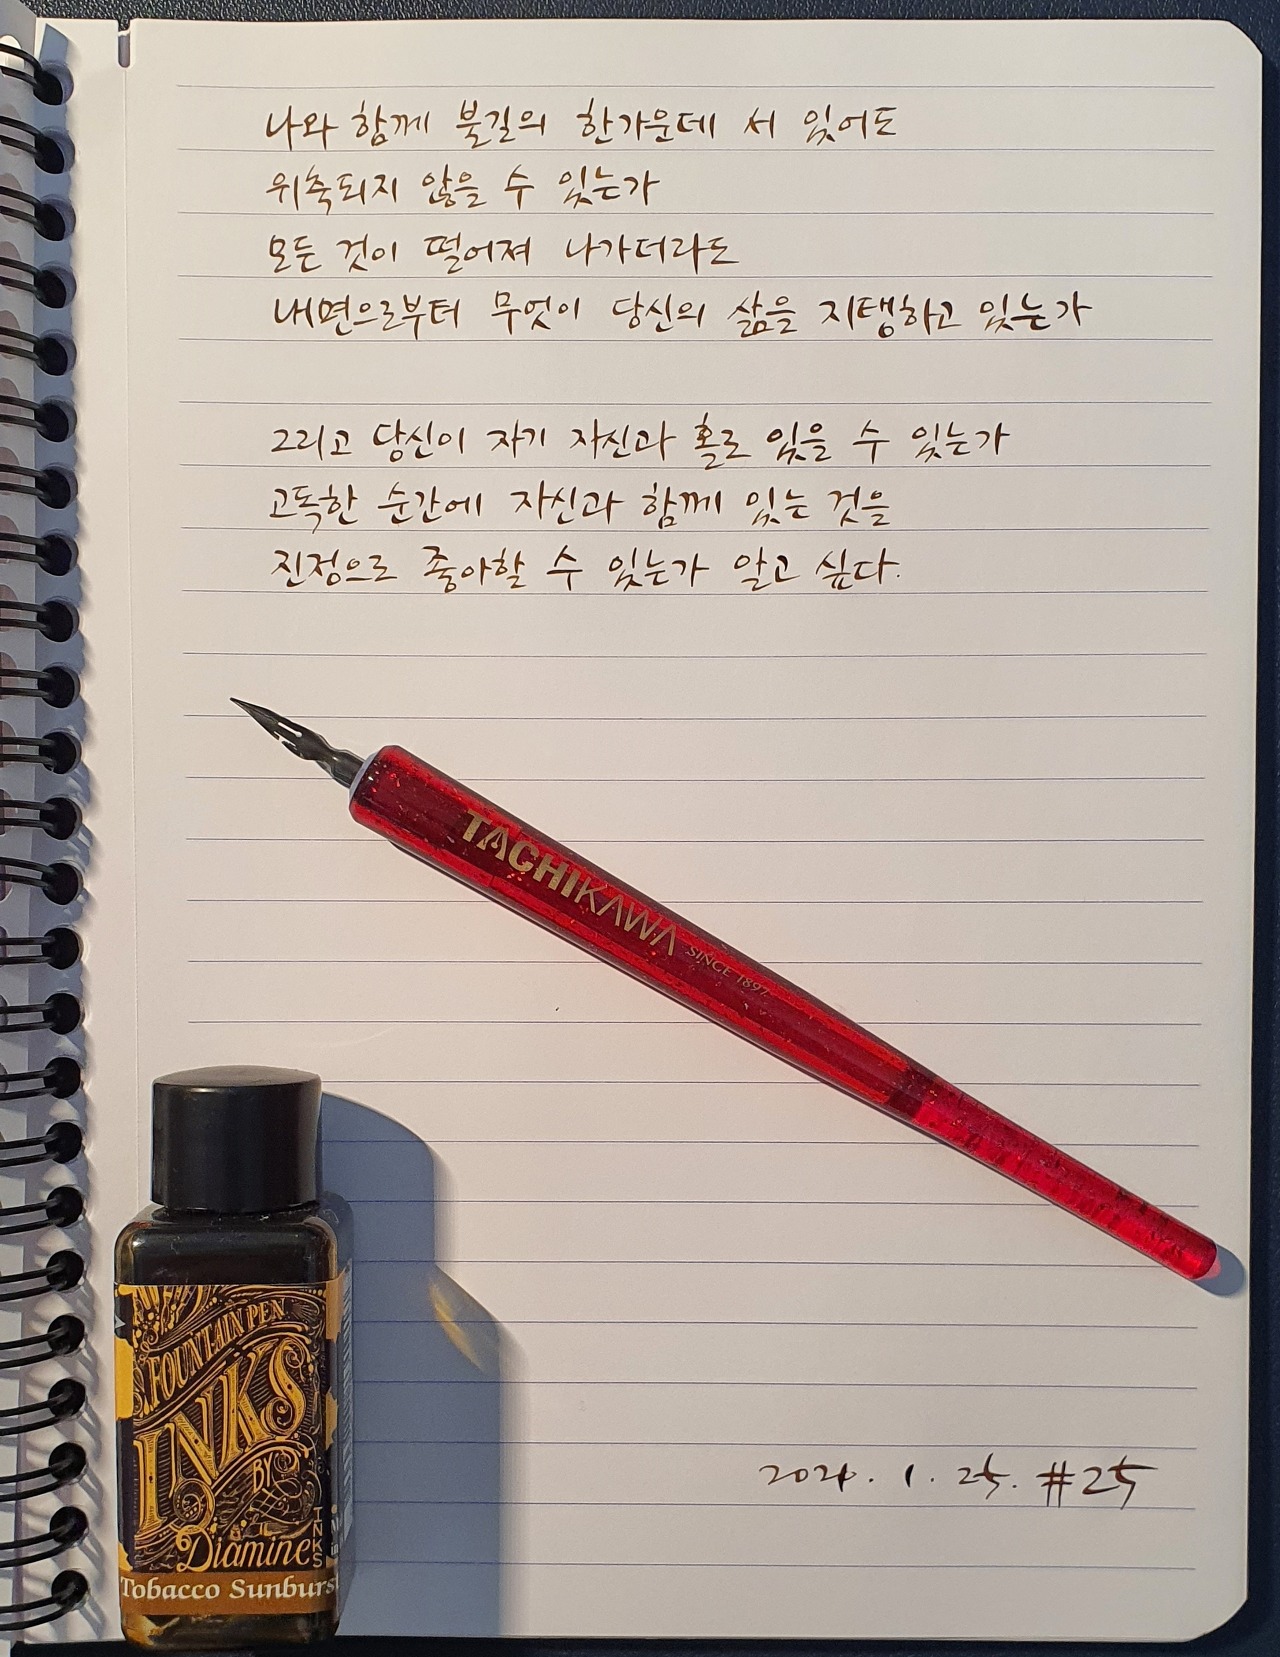 나와 함께 불길의 한가운데 서 있어도
위축되지 않을 수 있는가
모든 것이 떨어져 나가더라도
내면으로부터 무엇이 당신의 삶을 지탱하고 있는가
그리고 당신이 자기 자신과 홀로 있을 수 있는가
고독한 순간에 자신과 함께 있는 것을
진정으로 좋아할 수 있는가 알고 싶다.
TACHIKAWA SINCE 1897
FOUNTAIN PEN
INKS
BY
INKS
Diamine
Tobacco Sunburst
1. 25. #25